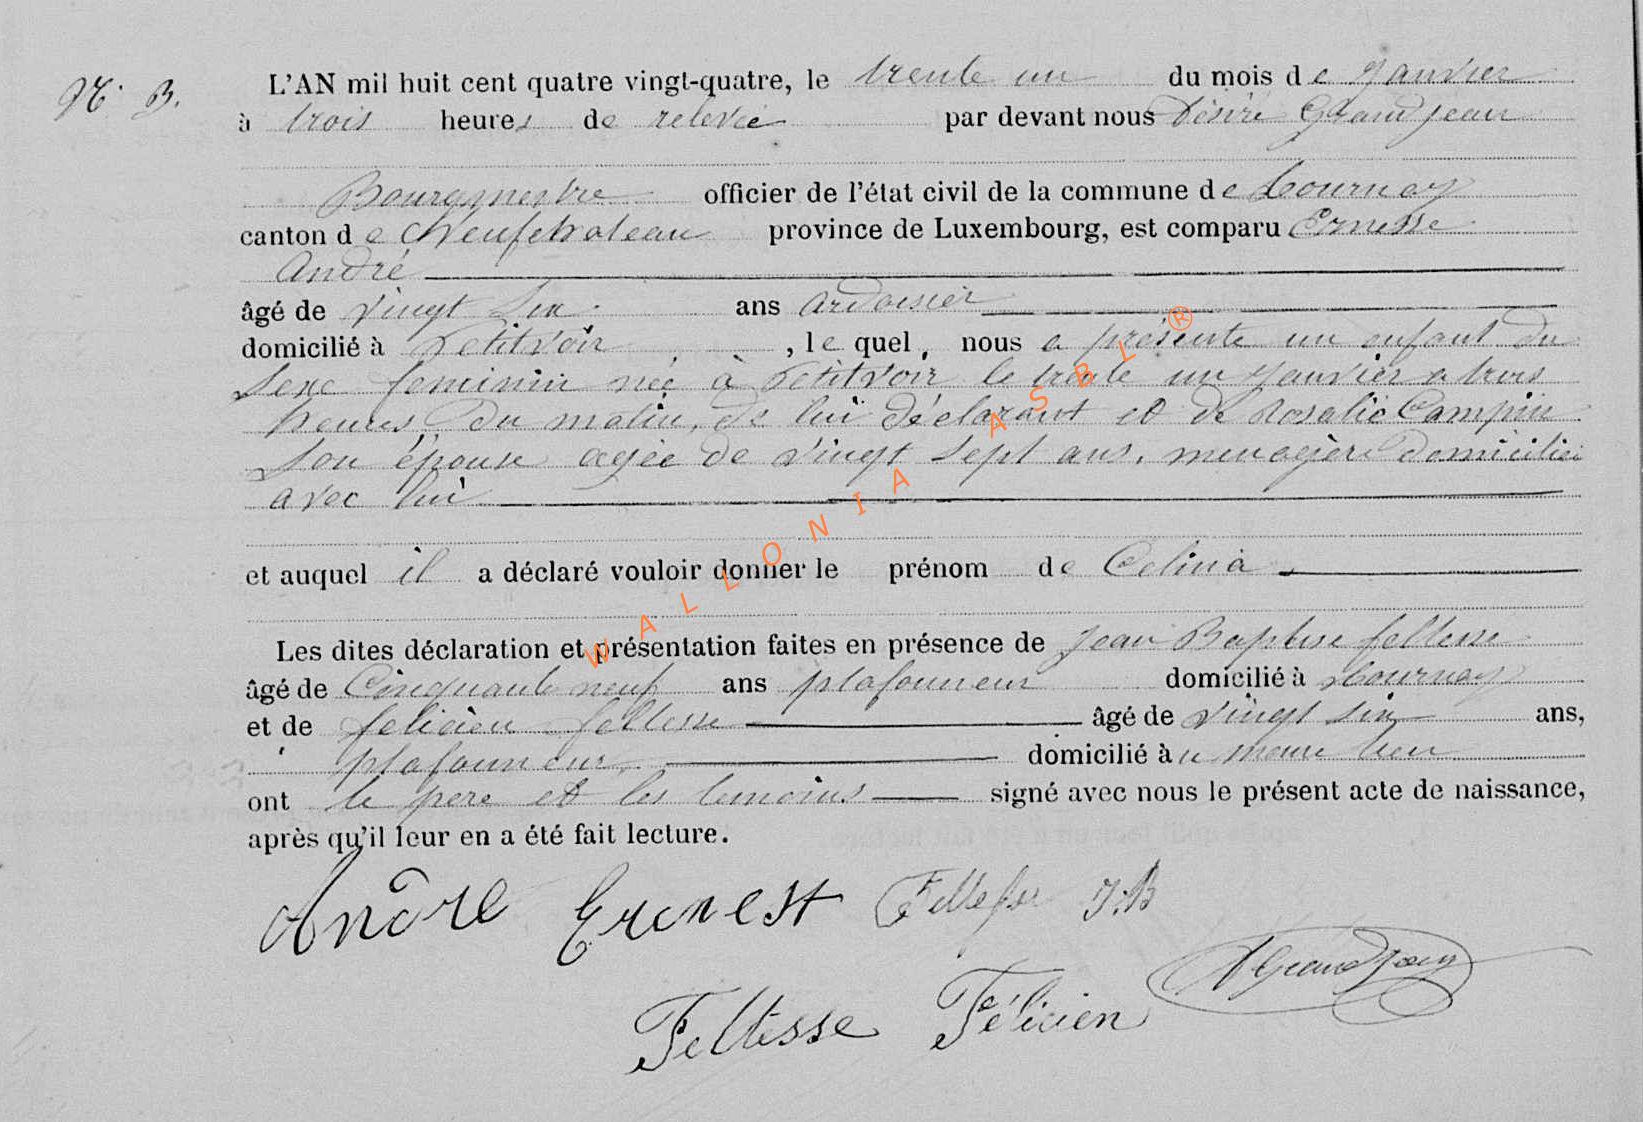 N° 3.
L'AN mil huit cent quatre vingt-quatre, le trente un du mois de Janvier
à trois heures de relevée par devant nous Désiré Grandjean
Bourgmestre officier de l'état civil de la commune de Tournay
canton de Neufchateau province de Luxembourg, est comparu Ernesse
André
âgé de vingt six ans ardoisier
domicilié à Petitvoir, lequel, nous a présenté un enfant du
sexe feminin née à Petitvoir le trente un Janvier a trois
heures du matin, de lui déclarant et de Rosalie Campin
son épouse agée de vingt sept ans, menagère domiciliée
avec lui
et auquel il a déclaré vouloir donner le prénom de Celina
Les dites déclaration et présentation faites en présence de Jean Baptise feltesse
âgé de Cinquante neuf ans plafonneur domicilié à Tournay
et de felicien feltesse âgé de vingt six ans,
plafonneur domicilié à u meme lieu
ont le pere et les temoins signé avec nous le présent acte de naissance,
après qu'il leur en a été fait lecture.
André Erenest Feltesse J.B
DGrandjean
Feltesse Félicien
WALLONIA ASBL ®